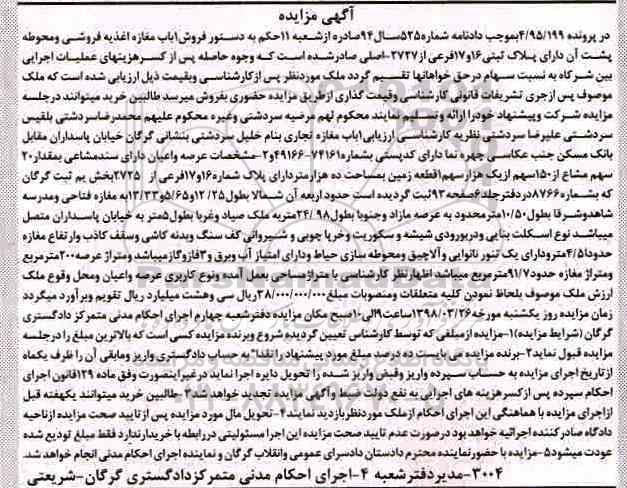 آگهی مزایده
در پرونده ۴/۹۵/۱۹۹بموجب دادنامه شماره۵۲۵سال۹۴صادره ازشعبه ۱۱حکم به دستور فروش۱باب مغازه اغذیه فروشی ومحوطه
پشت آن دارای پلاک ثبتی۱۶و۱۷فرعی از۲۷۲۷-اصلی صادرشده است که وجوه حاصله پس از کسرهزینهای عملیات اجرایی
بین شرکاه به نسبت سهام درحق خواهانها تقسیم گردد ملک موردنظر پس ازکارشناسی وبقیمت ذیل ارزیابی شده است که ملک
موصوف پس ازجری تشریفات قانونی کارشناسی وقیمت گذاری ازطریق مزایده حضوری بفروش میرسد طالبین خرید میتوانند درجلسه
مزایده شرکت وپیشنهاد خودرا ارائه وتسلیم نمایند محکوم لهم مرضیه سردشتی وغیره محکوم علیهم محمدرضاسردشتی بلقیس
سردشتی علیرضا سردشتی نظریه کارشناسی ارزیابی۱باب مغازه تجاری بنام خلیل سردشتی بنشانی گرگان خیابان پاسداران مقابل
بانک مسکن جنب عکاسی چهره نما دارای کدپستی بشماره۷۴۱۶۱-۴۹۱۶۶و۲-مشخصات عرصه واعیان دارای سندمشاعی بمقدار۲۰
سهم مشاع از۱۵۰سهم ازیک هزارسهم۱قطعه زمین بمساحت ده هزارمتردارای پلاک شماره۱۶و۱۷فرعی از ۲۷۲۵بخش یم ثبت گرگان
که بشماره۸۷۶۶دردفترجلد۶صفحه۹۳ثبت گردیده است حدود اربعه آن شمالا بطول۱۲/۲۵و۵/۶۵و۱۳/۳۳به مغازه فتاحی ومدرسه
شاهدوشرقا بطول۱۰/۵۰مترمحدود به عرصه مازاد وجنوبا بطول۲۴/۹۸متربه ملک صیاد وغربا بطول۵متر به خیابان پاسداران متصل
میباشد نوع اسکلت بنایی ودربورودی شیشه و سکوریت وخرپا چوبی و شیروانی کف سنگ وبدنه کاشی وسقف کاذب وارتفاع مغازه
حدود۴/۵متردارای یک تنور نانوایی وآلاچیق ومحوطه سازی حیاط ودارای امتیاز آب وبرق و۳فازوگازمیباشد ومتراژ عرصه۲۰۰مترمربع
ومتراژ مغازه حدود۹۱/۷مترمربع میباشد اظهارنظر کارشناسی با متراژمساحی بعمل آمده ونوع کاربری عرصه واعیان ومحل وقوع ملک
ارزش ملک موصوف بلحاظ نمودن کلیه متعلقات ومنصوبات مبلغ۳۸/۰۰۰/۰۰۰/۰۰۰ریال سی وهشت میلیارد ریال تقویم وبرآورد میگردد
زمان مزایده روز یکشنبه مورخه۱۳۹۸/۰۳/۲۶ساعت۹الی۱۰صبح مکان مزایده دفترشعبه چهارم اجرای احکام مدنی متمرکز دادگستری
گرگان (شرایط مزایده)۱-مزایده ازمبلغی که توسط کارشناس تعیین گردیده شروع وبرنده مزایده کسی است که بالاترین مبلغ را درجلسه
مزایده قبول نماید۲-برنده مزایده می بایست ده درصد مبلغ مورد پیشنهاد را نقدا" به حساب دادگستری واریز ومابقی آن را ظرف یکماه
ازتاریخ اجرای مزایده به حساب سپرده واریز وقبض واریز شده را تحویل دایره اجرا نماید درغیراینصورت وفق ماده ۱۲۹قانون اجرای
احکام سپرده پس ازکسرهزینه های اجرایی به نفع دولت ضبط و آگهی مزایده تجدید خواهد شد۳-طالبین خرید میتوانند یکهفته قبل
ازاجرای مزایده با هماهنگی این اجرای احکام ازملک موردنظربازدید نمایند۴-تحویل مال مورد مزایده پس از تایید صحت مزایده ازناحیه
دادگاه صادرکننده اجرائیه خواهد بود درصورت عدم تایید صحت مزایده این اجرا مسئولیتی دررابطه با خریدارندارد فقط مبلغ تودیع شده
عودت میشود۵-مزایده با حضورنماینده محترم دادستان دادسرای عمومی وانقلاب گرگان و نماینده اجرای احکام مدنی انجام خواهد شد.
۳۰۰۴-مدیردفترشعبه ۴-اجرای احکام مدنی متمرکزدادگستری گرگان-شریعتی